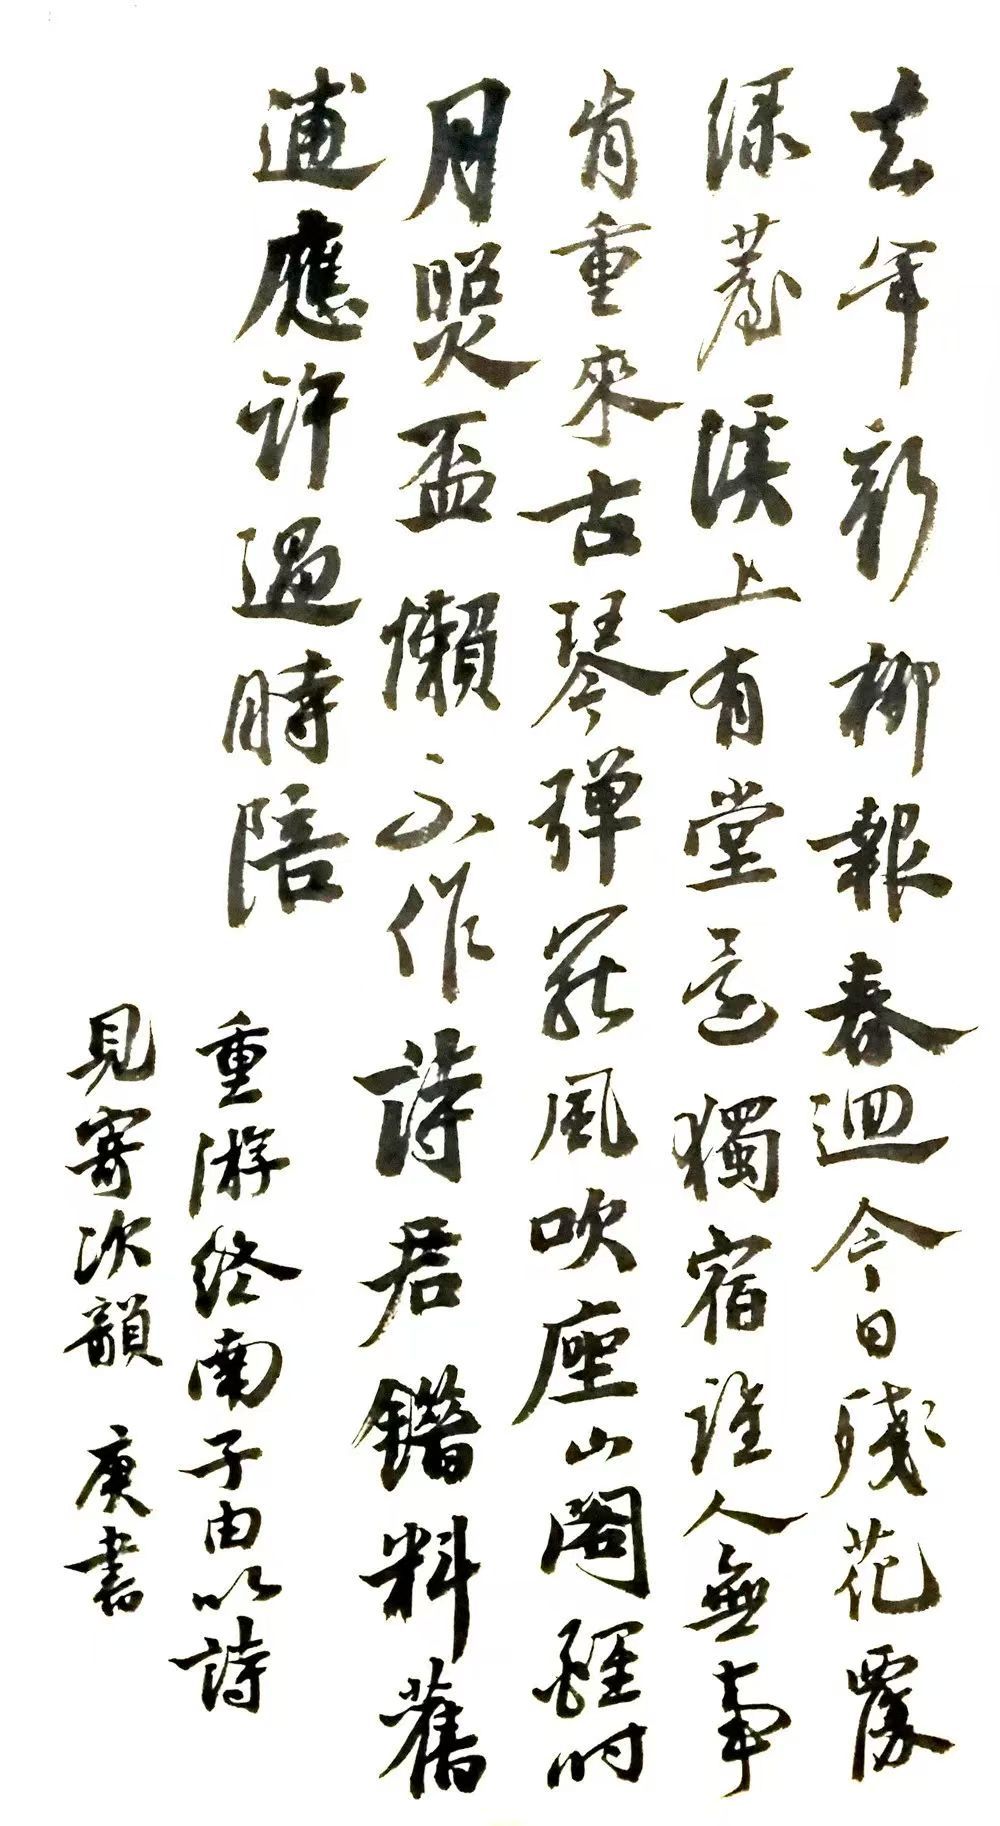 去年新柳報春迴今日殘花覆
綠苔溪上有堂還獨宿誰人無事
肯重來古琴彈罷風吹座山閣醒时
月照盃懶不作詩君錯料舊
逋應許過時陪
重游終南子由以詩
見寄次韻 庚書